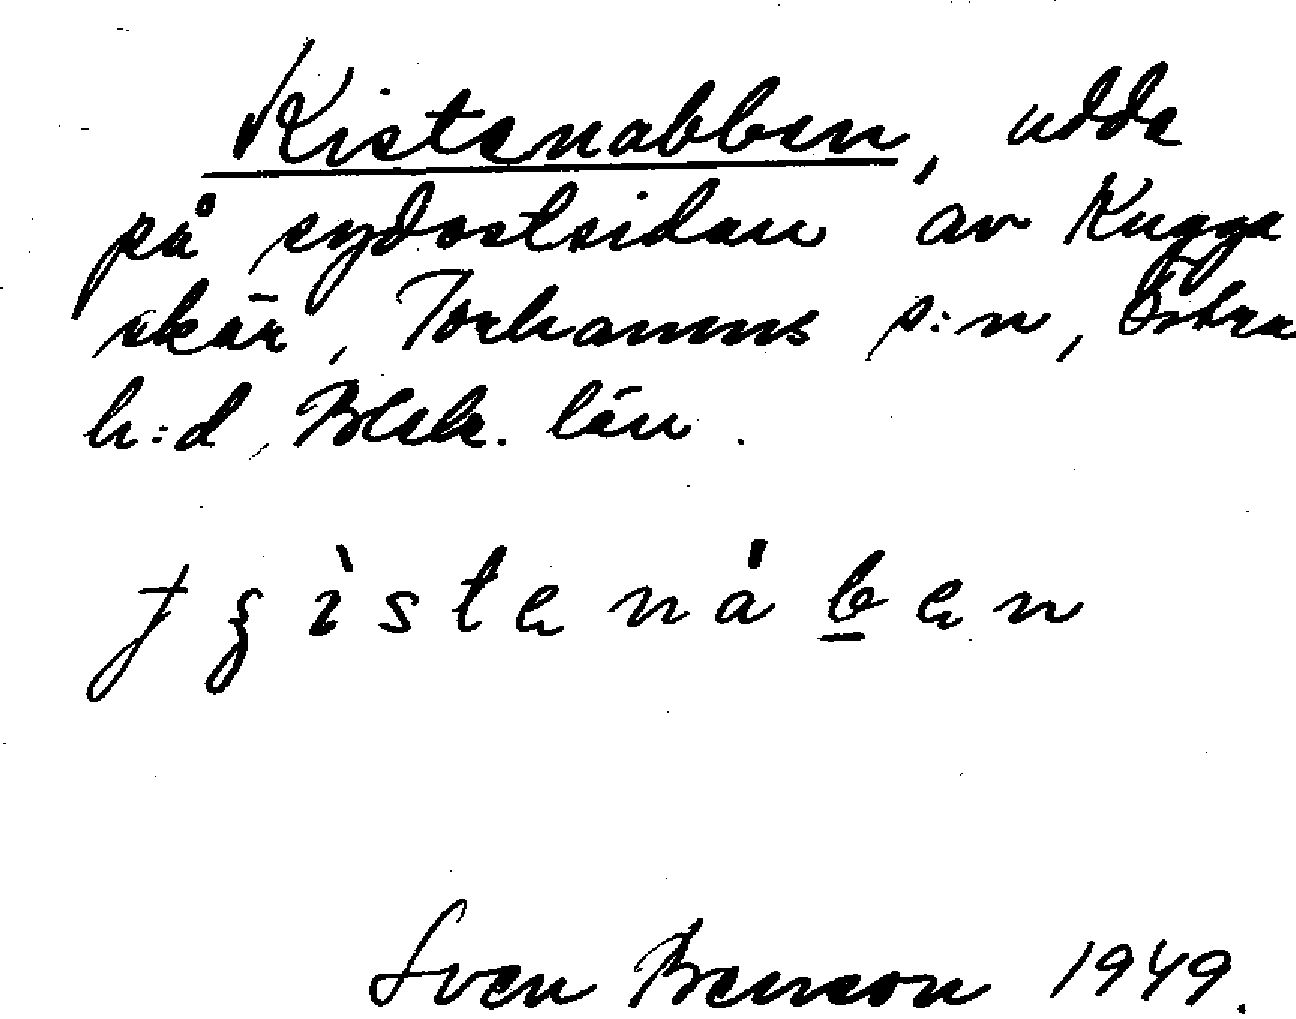 Kistenabben, udde
på sydostsidan av Kugga
skär, Torhamns s:n, Östra
h:d, Blek. län.
Sven Benson 1949.